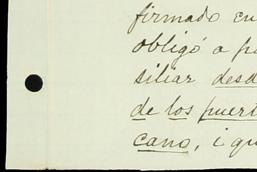 firmado en
obligó a p
siliar desd
de los puert
cano, i qu